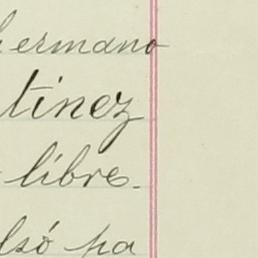 hermano
tinez
libres.
lsó pa